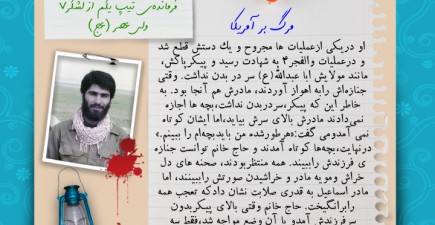 فرمانده‌ی تیپ یکم از لشکر۷
ولی عصر (عج)
مرگ بر آمریکا
او دریکی ازعملیات ها مجروح و یك دستش قطع شد
و درعملیات والفجر۴ به شهادت رسید و پیکرپاکش،
مانند مولایش ابا عبدالله(ع) سر در بدن نداشت. وقتی
جنازه‌اش رابه اهواز آوردند، مادرش هم آنجا بود. به
خاطر این که پیکر،سردربدن نداشت،بچه ها اجازه
نمی‌دادند مادرش بالای سرش بیاید،اما ایشان کوتاه
نمی آمدومی گفت:«هرطورشده من بایدبچه‌ام را ببینم.»
درنهایت،بچه‌ها کوتاه آمدند و حاج خانم توانست جنازه
ی فرزندش راببیند. همه منتظربودند، صحنه های دل
خراش ومویه مادر و خراشیدن صورتش راببینند، اما
مادر اسماعیل به قدری صلابت نشان دادکه تعجب همه
رابرانگیخت. حاج خانم وقتی بالای پیکربدون
سرفرزندش آمدو با آن وضع مواجه شد،فقط سه